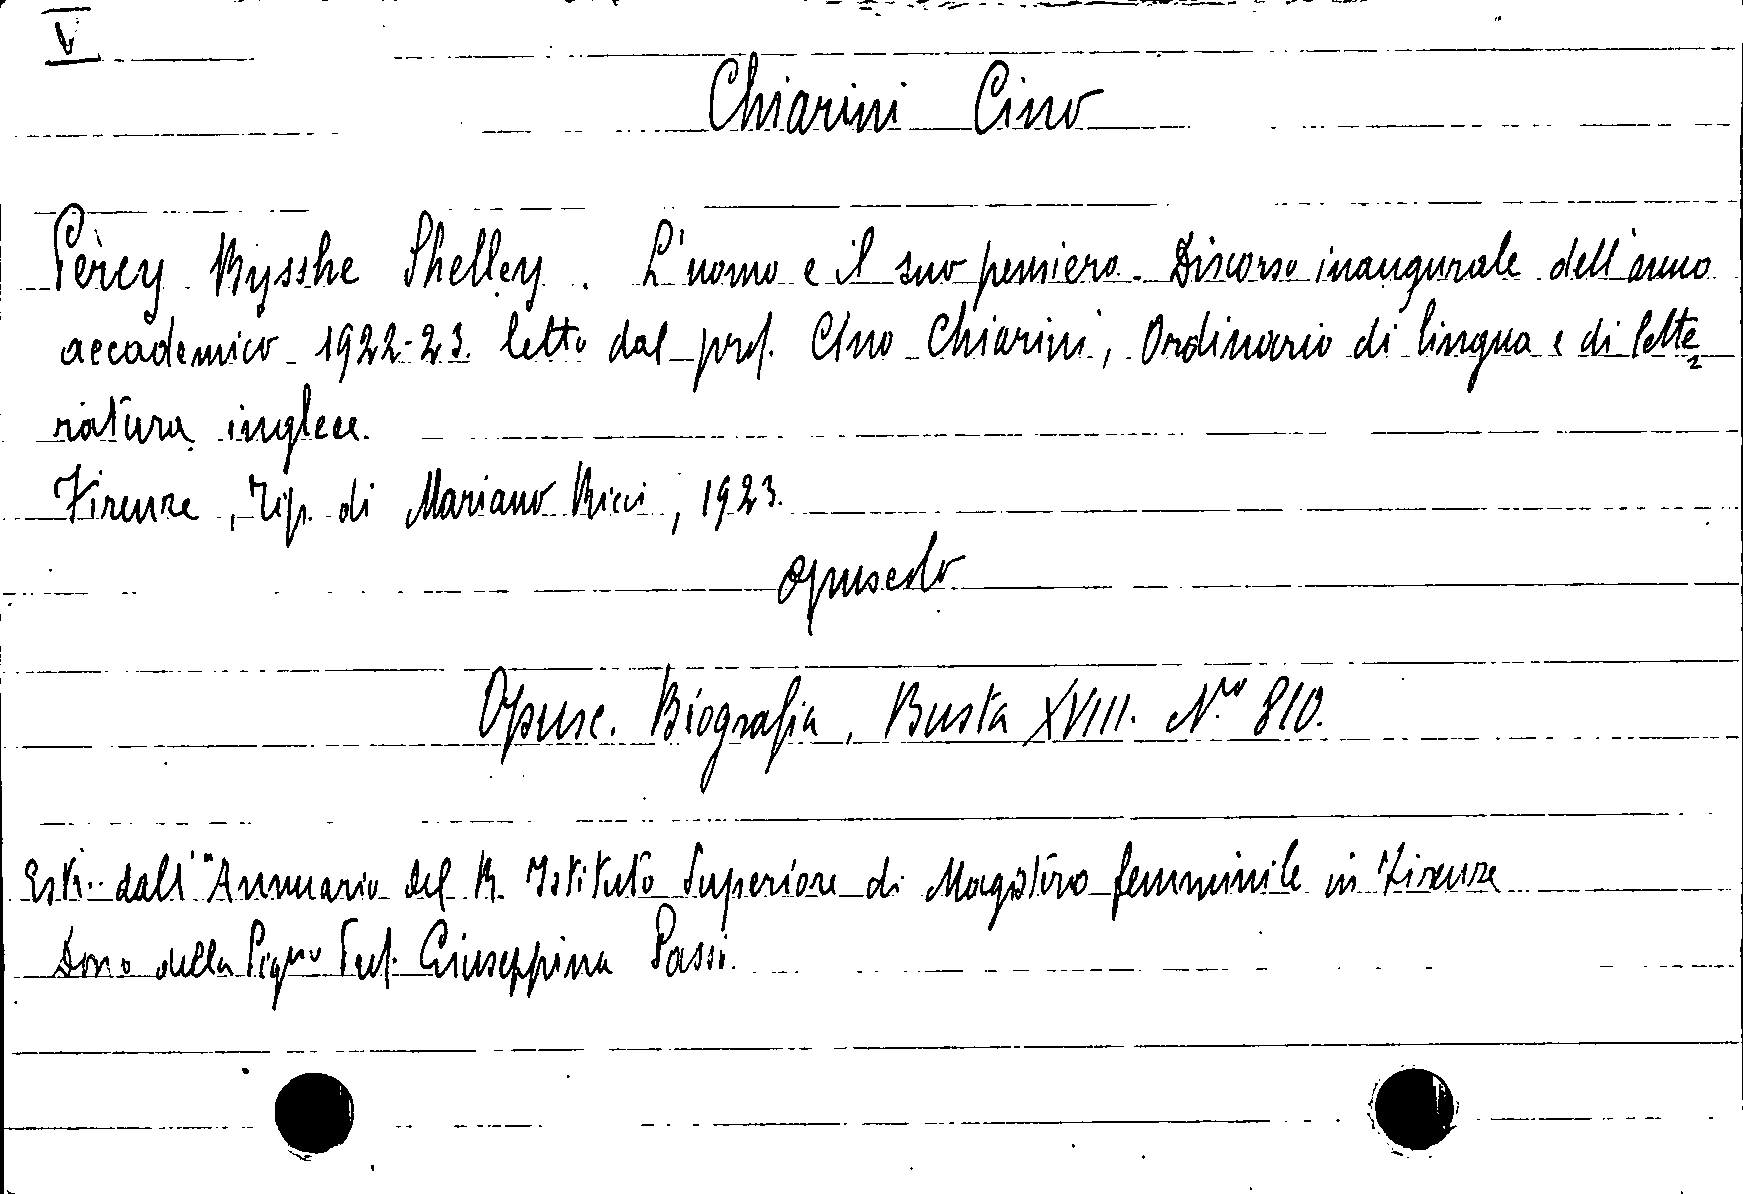 V
Chiarini Cino
Percy Bysshe Shelley. L'uomo e il suo pensiero. Discorso inaugurale dell'anno
accademico 1922-23. letto dal prof. Cino Chiarini, Ordinario di lingua e di lette=
ratura inglese.
Firenze, Tip. di Mariano Ricci, 1923.
opuscolo
Opusc. Biografia, Busta XVIII. N.ro 810.
Estr. dall'"Annuario del R. Istituto Superiore di Magistero femminile in Firenze
Dono della Prof. Giuseppina Passi.